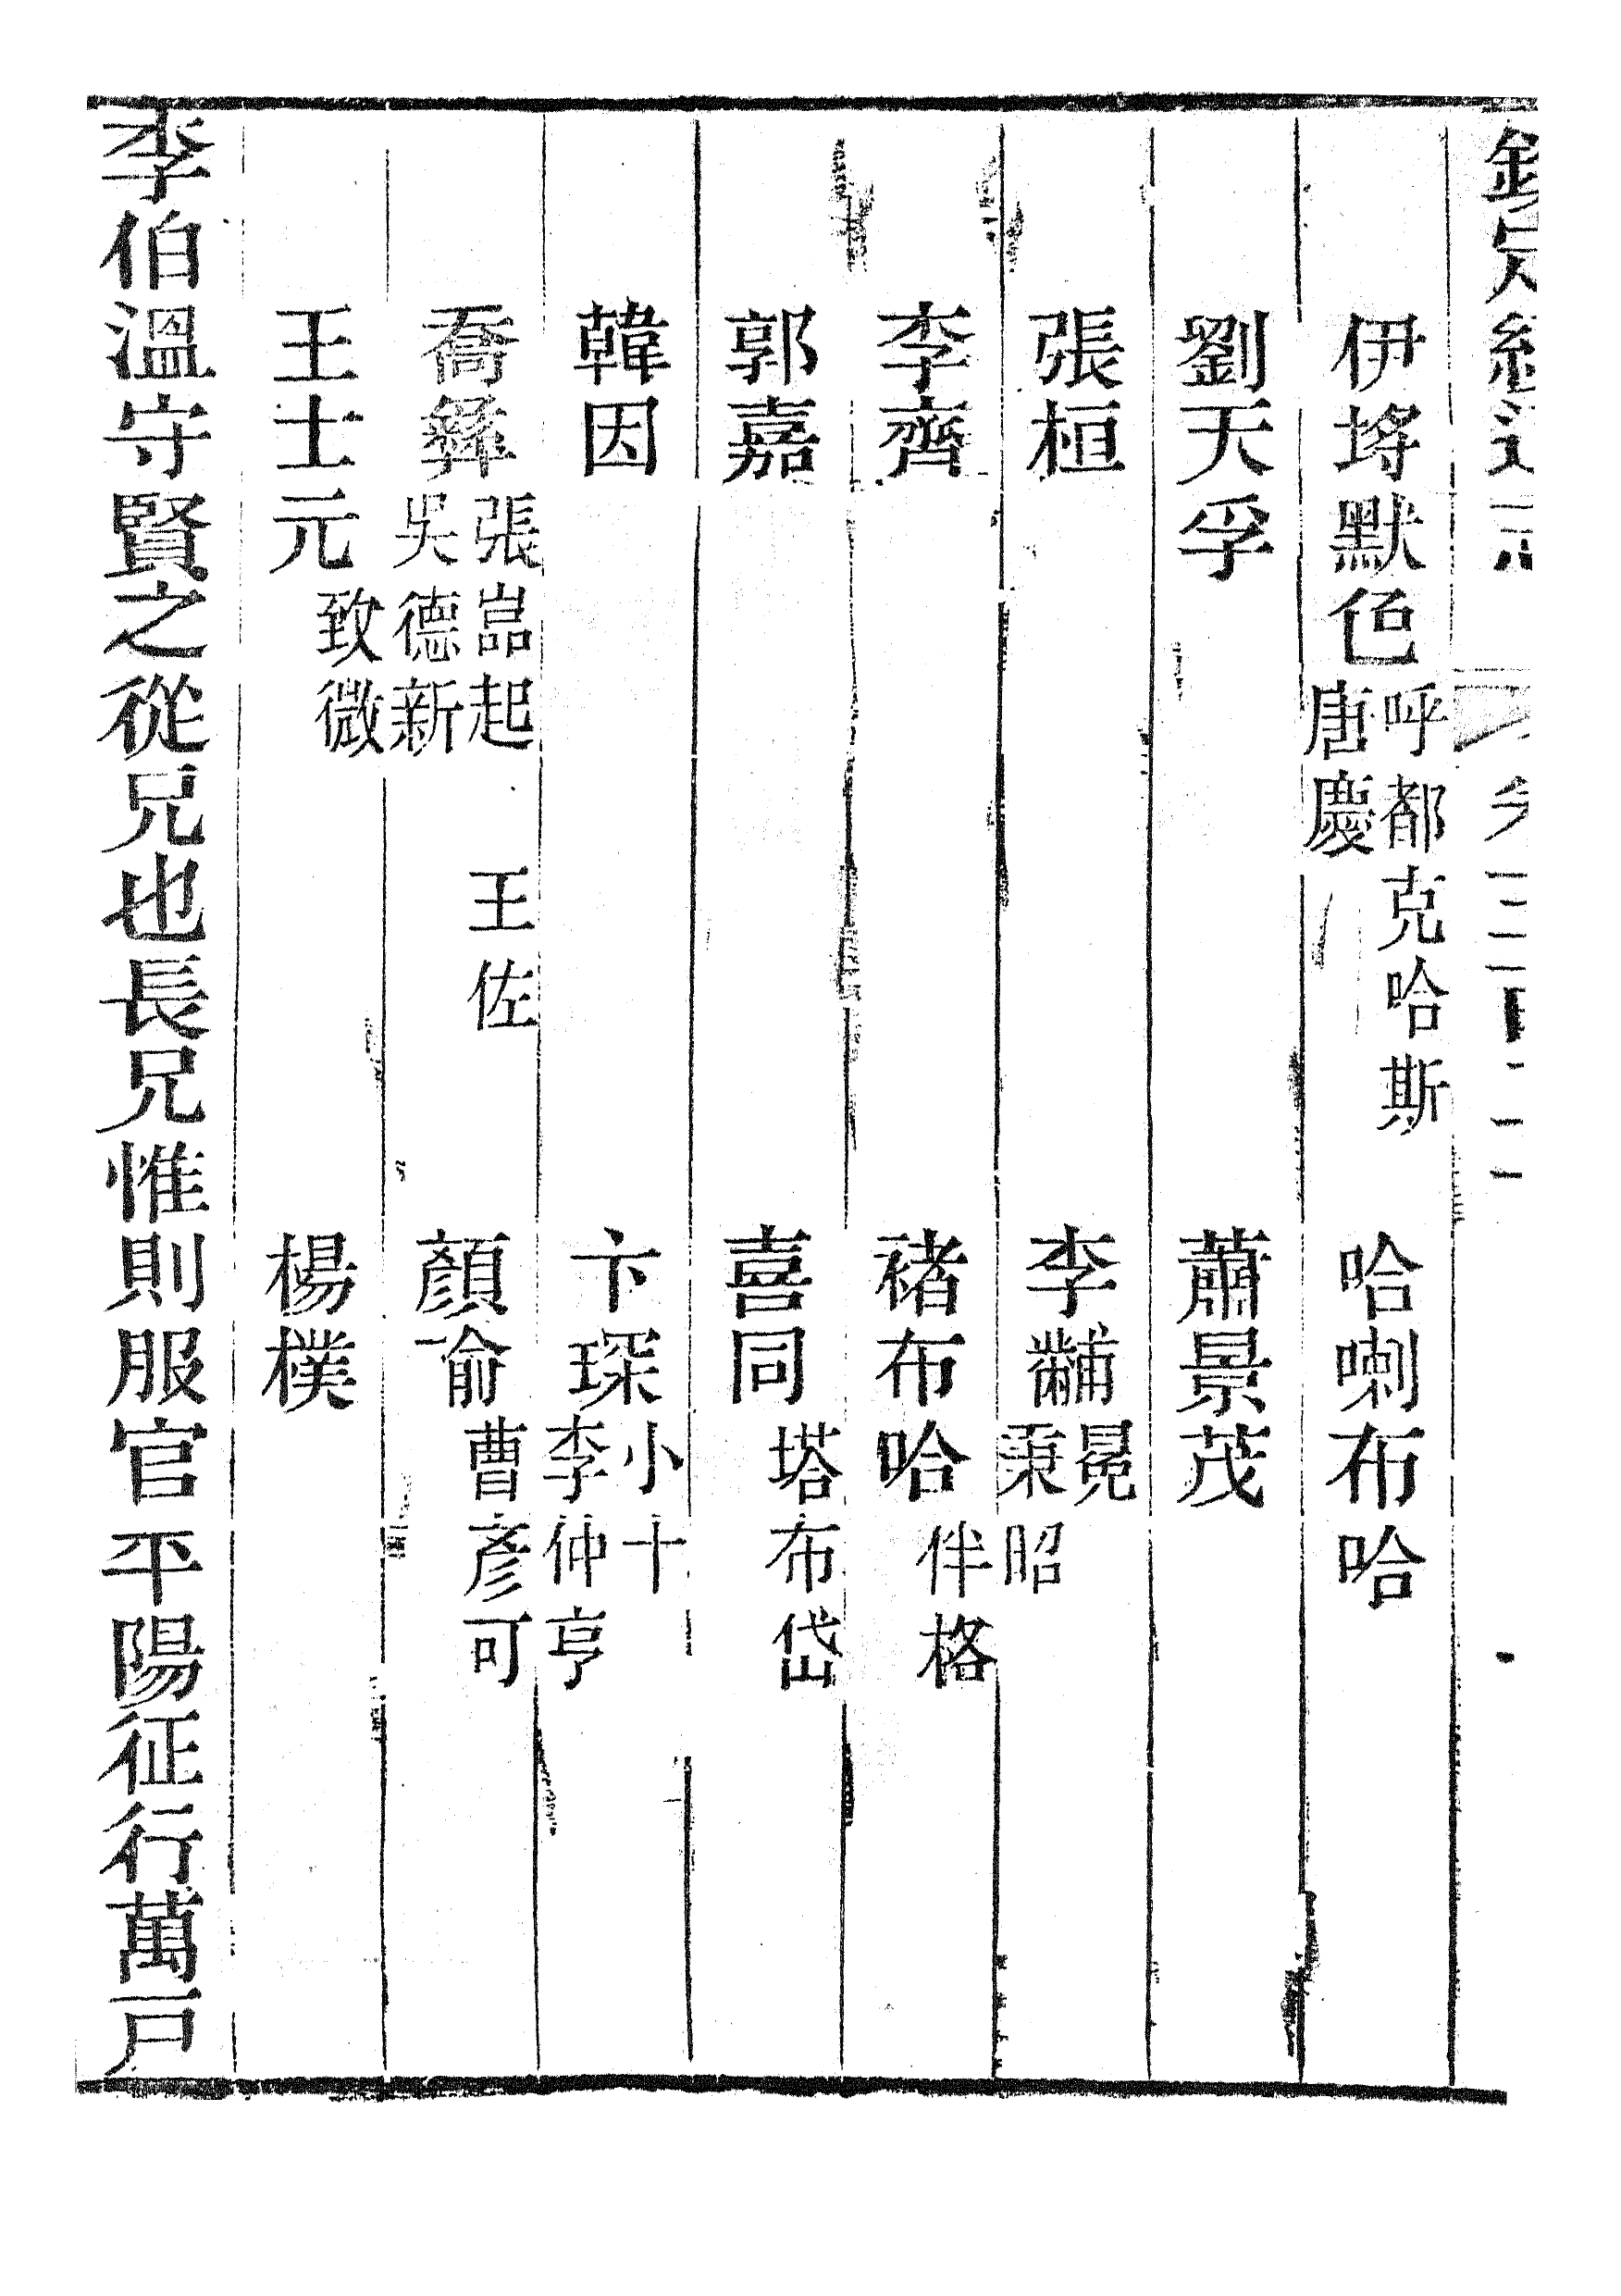 欽定續通志
伊埒默色 呼都克哈斯 唐慶 哈喇布哈
劉天孚 蕭景茂
張桓 李黼 冕 秉昭
李齊 褚布哈 伴格
郭嘉 喜同 塔布岱
韓因 卞琛 小十 李仲亨
喬彝 張嵓起 吳德新 王佐 顏瑜 曹彥可
王士元 致微 楊樸
李伯溫守賢之從兄也長兄惟則服官平陽征行萬戶